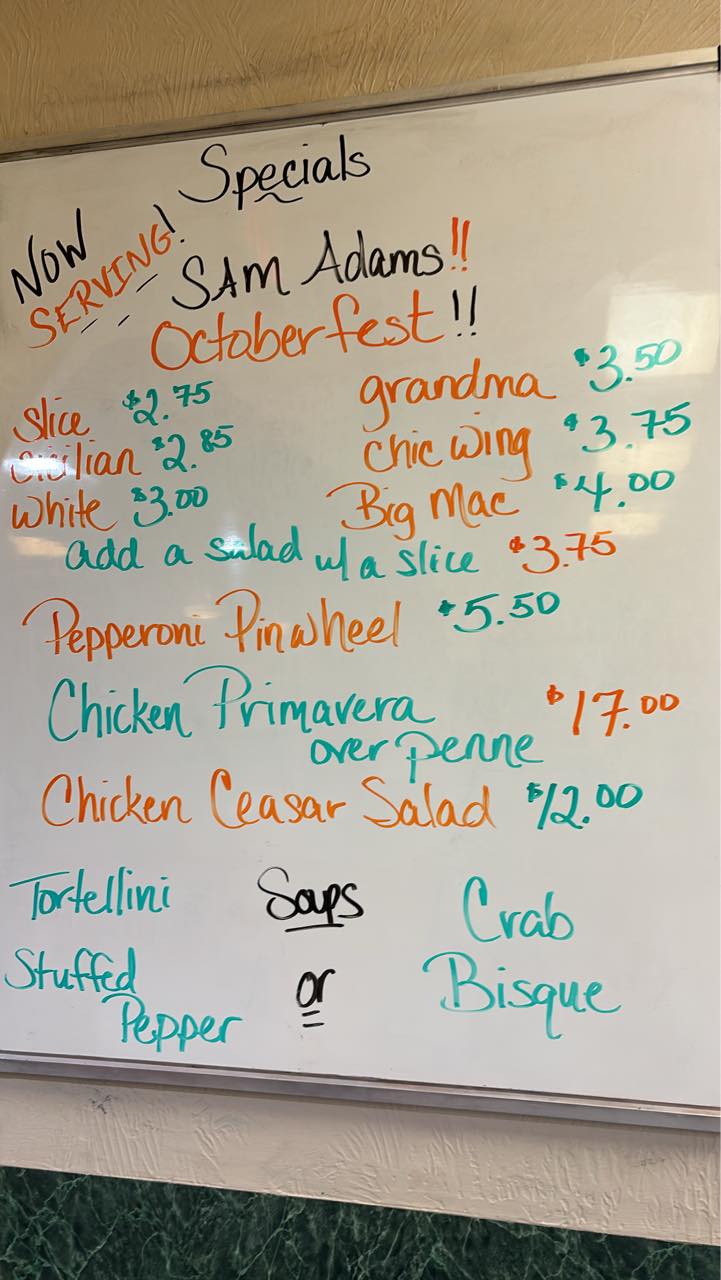 Specials
NOW
SERVING!
SAM Adams!!
Octoberfest!!
Slice $2.75
grandma $3.50
Sicilian $2.85
chic wing $3.75
white $3.00
Big Mac $4.00
add a salad w/ a slice $3.75
Pepperoni Pinwheel $5.50
Chicken Primavera $17.00
over penne
Chicken Ceasar Salad $12.00
Soups
Tortellini
Stuffed
Pepper
or
Crab
Bisque